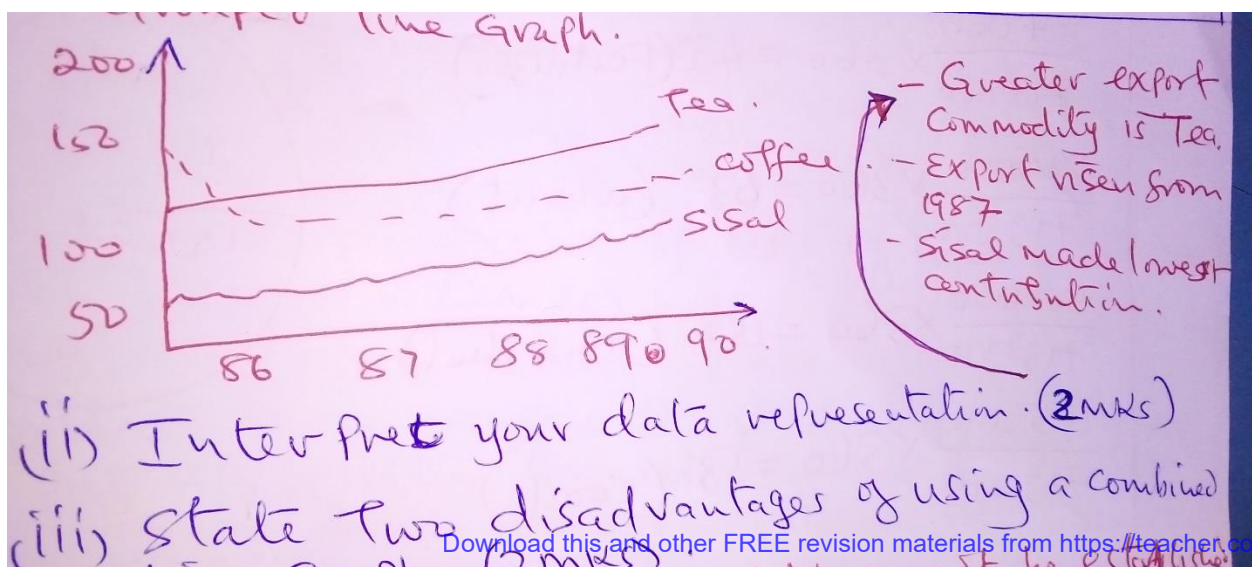 line Graph.
200
150
100
50
Tea.
coffee
Sisal
86 87 88 89 90
- Greater export
Commodity is Tea.
- Export risen from
1987
- Sisal made lowest
contribution.
(ii) Interpret your data representation. (2mks)
(iii) State Two disadvantages of using a combined
(2mks).
Download this and other FREE revision materials from https://teacher.co